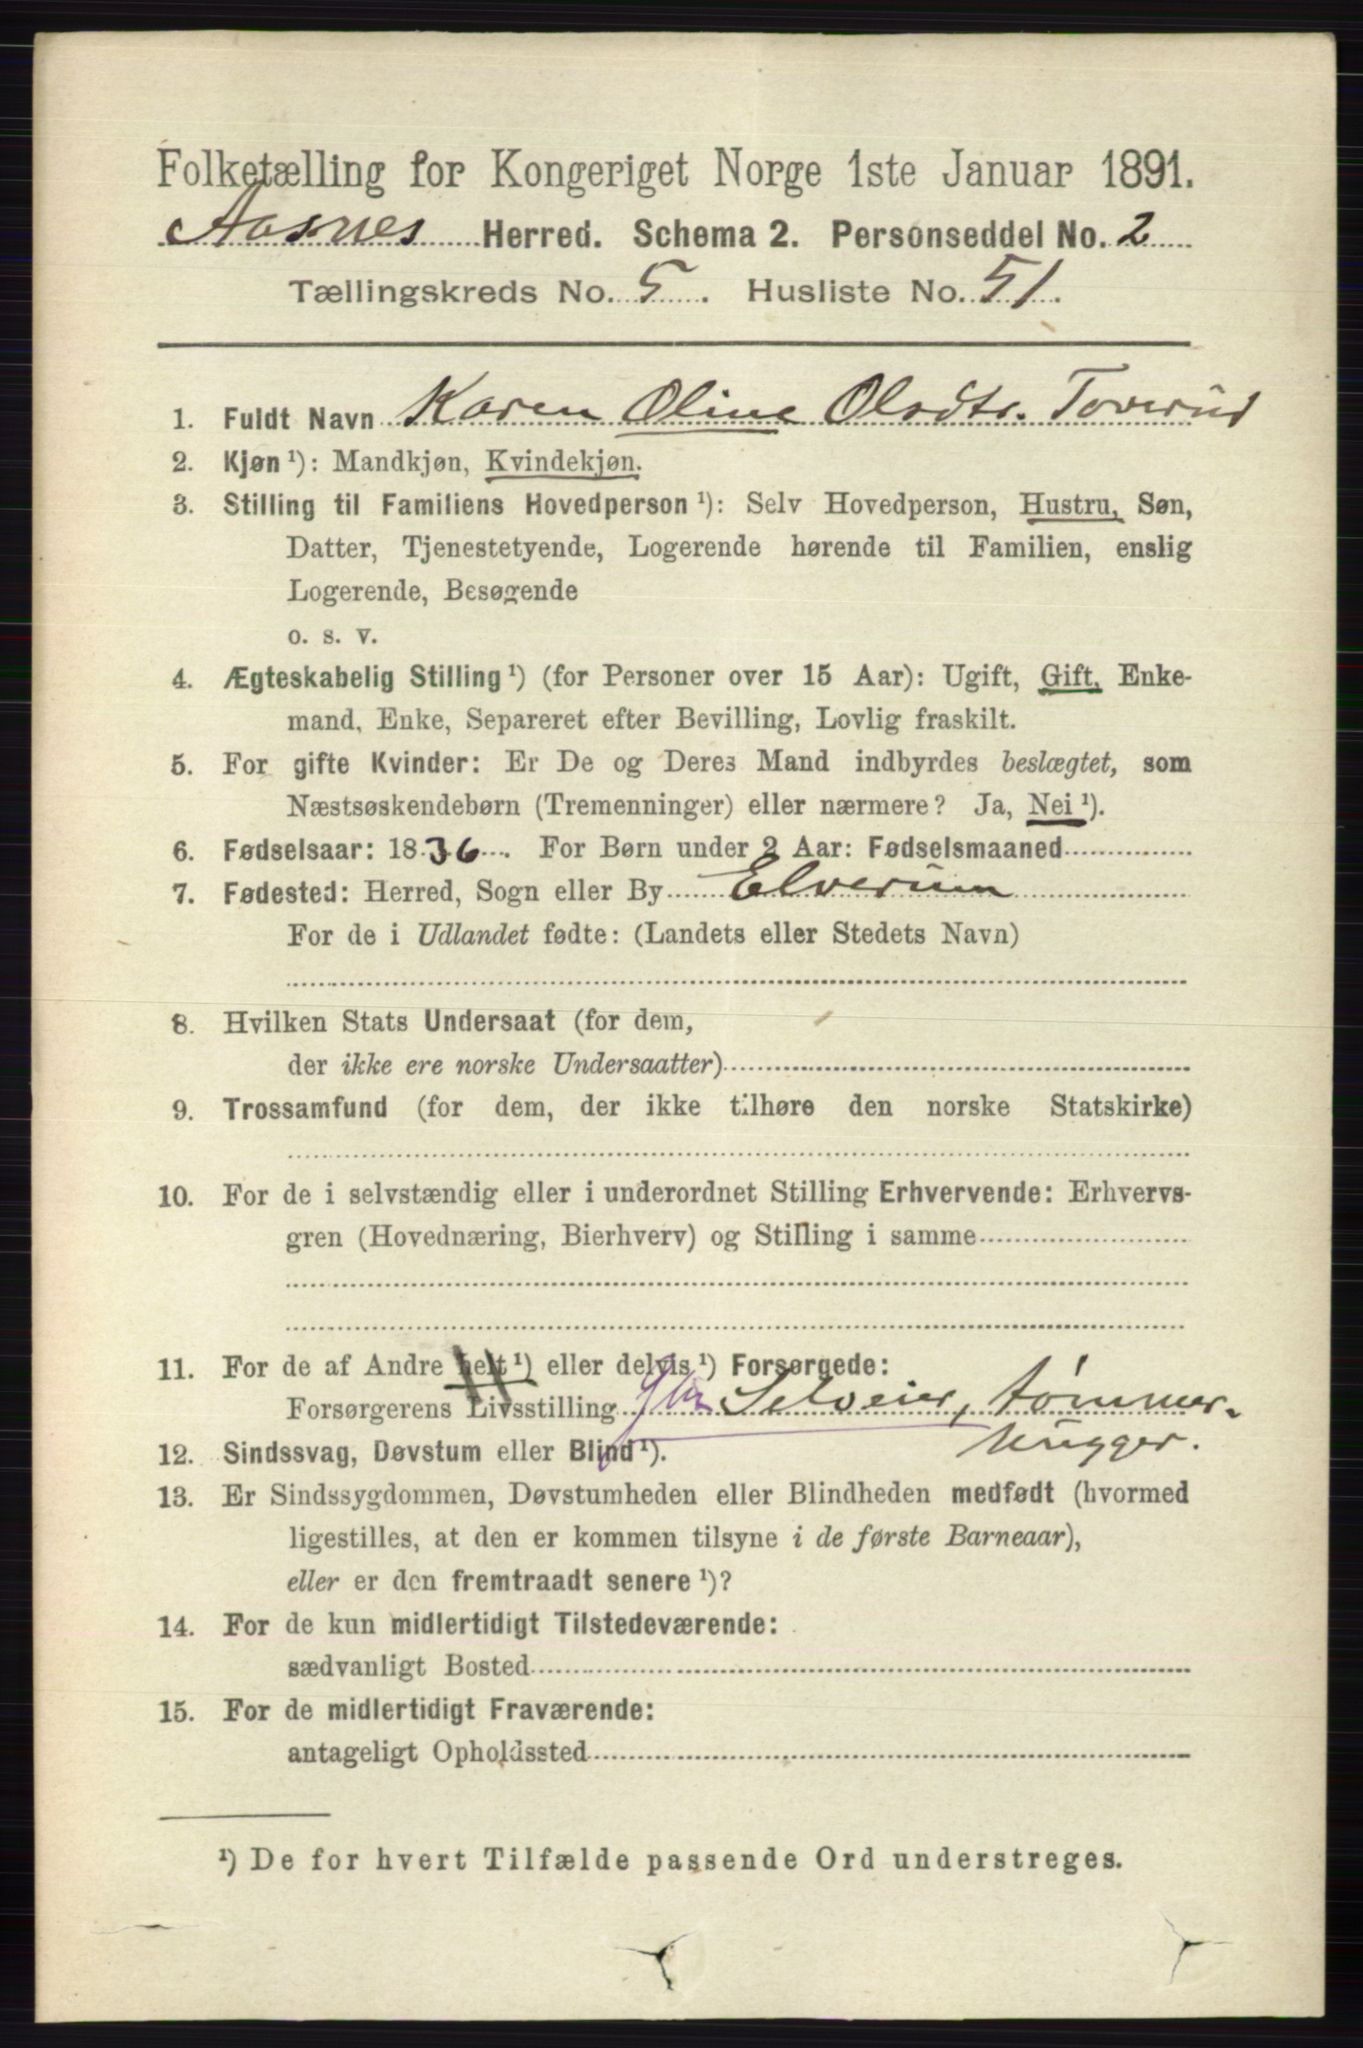 Folketælling for Kongeriget Norge 1ste Januar 1891.
Aasnes Herred. Schema 2. Personseddel No. 2
Tællingskreds No. 5. Husliste No. 51.
1. Fuldt Navn Karen Oline Olsdtr. Toverud
2. Kjøn ¹): Mandkjøn, Kvindekjøn.
3. Stilling til Familiens Hovedperson ¹): Selv Hovedperson, Hustru, Søn,
Datter, Tjenestetyende, Logerende hørende til Familien, enslig
Logerende, Besøgende
o. s. v.
4. Ægteskabelig Stilling ¹) (for Personer over 15 Aar): Ugift, Gift, Enke-
mand, Enke, Separeret efter Bevilling, Lovlig fraskilt.
5. For gifte Kvinder: Er De og Deres Mand indbyrdes beslægtet, som
Næstsøskendebørn (Tremenninger) eller nærmere? Ja, Nei ¹).
6. Fødselsaar: 1836. For Børn under 2 Aar: Fødselsmaaned
7. Fødested: Herred, Sogn eller By Elverum
For de i Udlandet fødte: (Landets eller Stedets Navn)
8. Hvilken Stats Undersaat (for dem,
der ikke ere norske Undersaatter)
9. Trossamfund (for dem, der ikke tilhøre den norske Statskirke)
10. For de i selvstændig eller i underordnet Stilling Erhvervende: Erhvervs-
gren (Hovednæring, Bierhverv) og Stilling i samme
11. For de af Andre helt ¹) eller delvis ¹) Forsørgede:
Forsørgerens Livsstilling Selveier, tømmer-
hugger.
12. Sindssvag, Døvstum eller Blind ¹).
13. Er Sindssygdommen, Døvstumheden eller Blindheden medfødt (hvormed
ligestilles, at den er kommen tilsyne i de første Barneaar),
eller er den fremtraadt senere ¹)?
14. For de kun midlertidigt Tilstedeværende:
sædvanligt Bosted
15. For de midlertidigt Fraværende:
antageligt Opholdssted
¹) De for hvert Tilfælde passende Ord understreges.